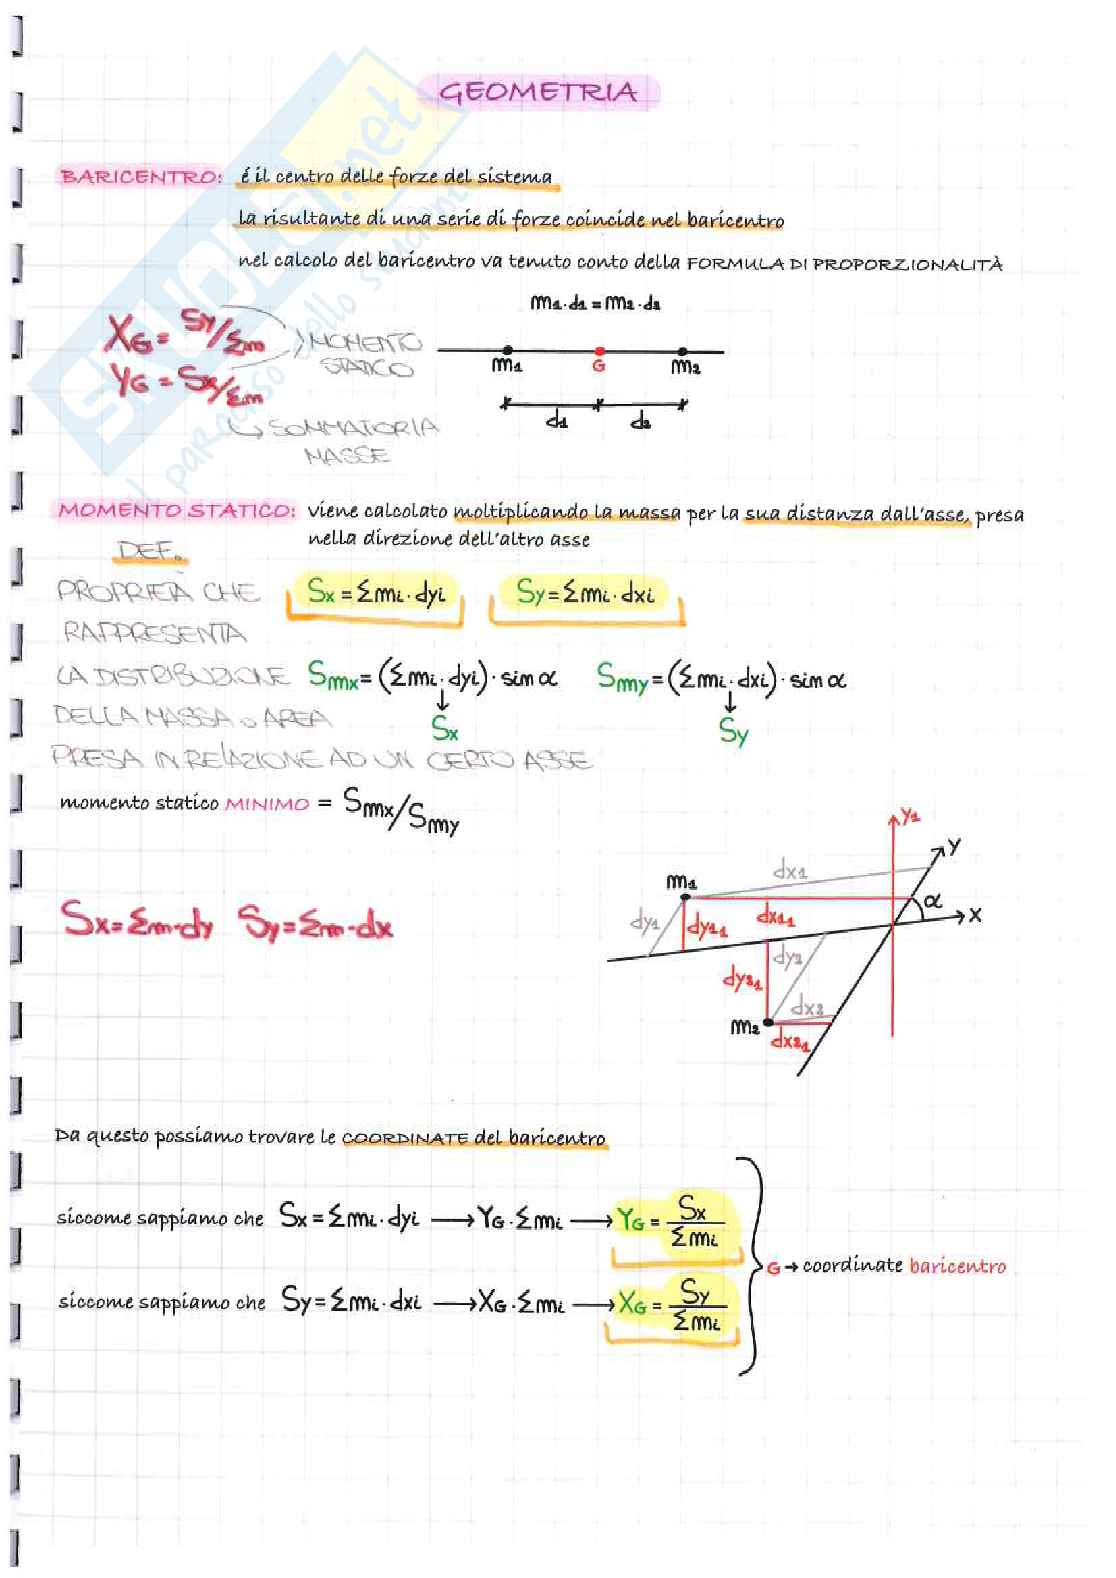 GEOMETRIA
BARICENTRO: é il centro delle forze del sistema
la risultante di una serie di forze coincide nel baricentro
nel calcolo del baricentro va tenuto conto della FORMULA DI PROPORZIONALITÀ
m1·d1=m2·d2
XG = Sy/Σm
YG = Sx/Σm
MOMENTO
STATICO
m1 G m2
d1 d2
SOMMATORIA
MASSE
MOMENTO STATICO: viene calcolato moltiplicando la massa per la sua distanza dall'asse, presa
nella direzione dell'altro asse
DEF.
PROPRIETÀ CHE
RAPPRESENTA
LA DISTRIBUZIONE
DELLA MASSA o AREA
PRESA IN RELAZIONE AD UN CERTO ASSE
Sx = Σmi·dyi Sy = Σmi·dxi
Smx = (Σmi·dyi)·sin α Smy = (Σmi·dxi)·sin α
↓ ↓
Sx Sy
momento statico MINIMO = Smx/Smy
Sx = Σm·dy Sy = Σm·dx
Y1
Y
dx1
m1
α
X
dy1
dy11
dx11
dy2
dy21
dx2
m2
dx21
Da questo possiamo trovare le COORDINATE del baricentro
siccome sappiamo che Sx = Σmi·dyi → YG·Σmi → YG = Sx/Σmi
G → coordinate baricentro
siccome sappiamo che Sy = Σmi·dxi → XG·Σmi → XG = Sy/Σmi
SKUOLA.net
il paradiso dello studente